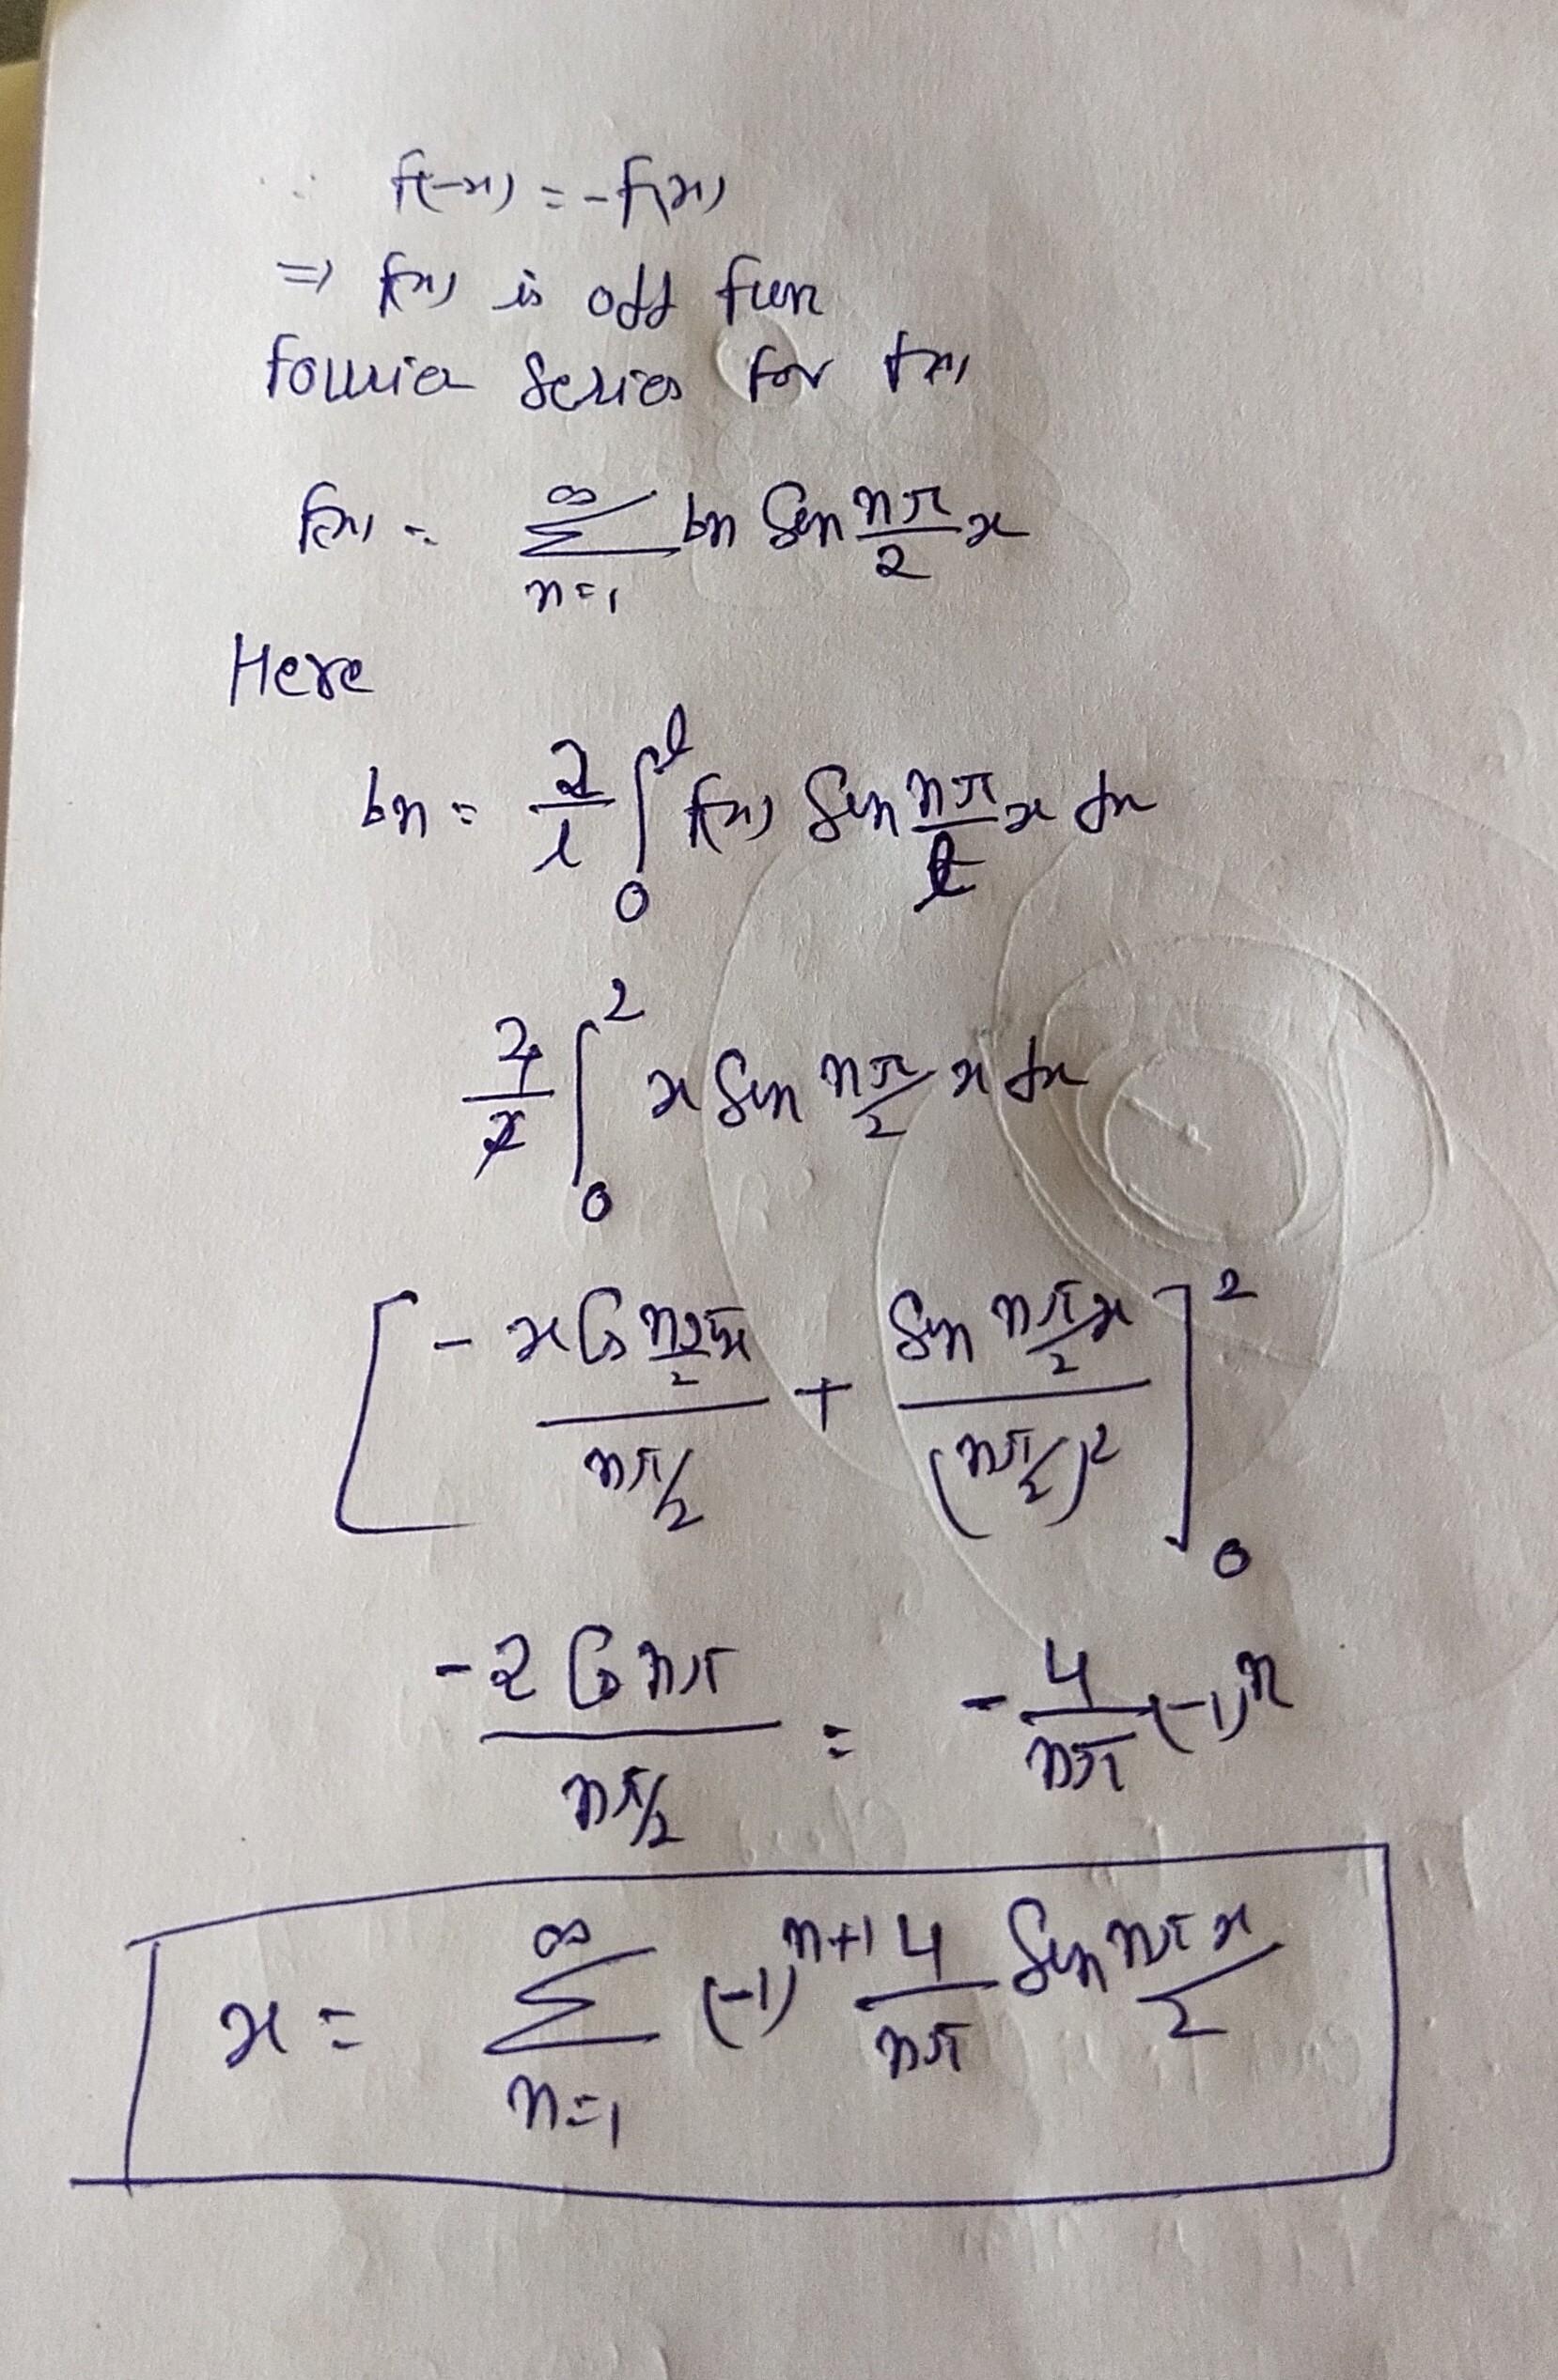 ∵ f(-x) = -f(x)
⇒ f(x) is odd fun
Fourier Series for f(x)
f(x) = ∑_{n=1}^{∞} bn Sin nπ/2 x
Here
bn = 2/l ∫_0^l f(x) Sin nπ/l x dx
2/2 ∫_0^2 x Sin nπ/2 x dx
[ - x Cos nπx/2 / nπ/2 + Sin nπx/2 / (nπ/2)^2 ]_0^2
-2 Cos nπ / nπ/2 = - 4/nπ (-1)^n
x = ∑_{n=1}^{∞} (-1)^{n+1} 4/nπ Sin nπx/2